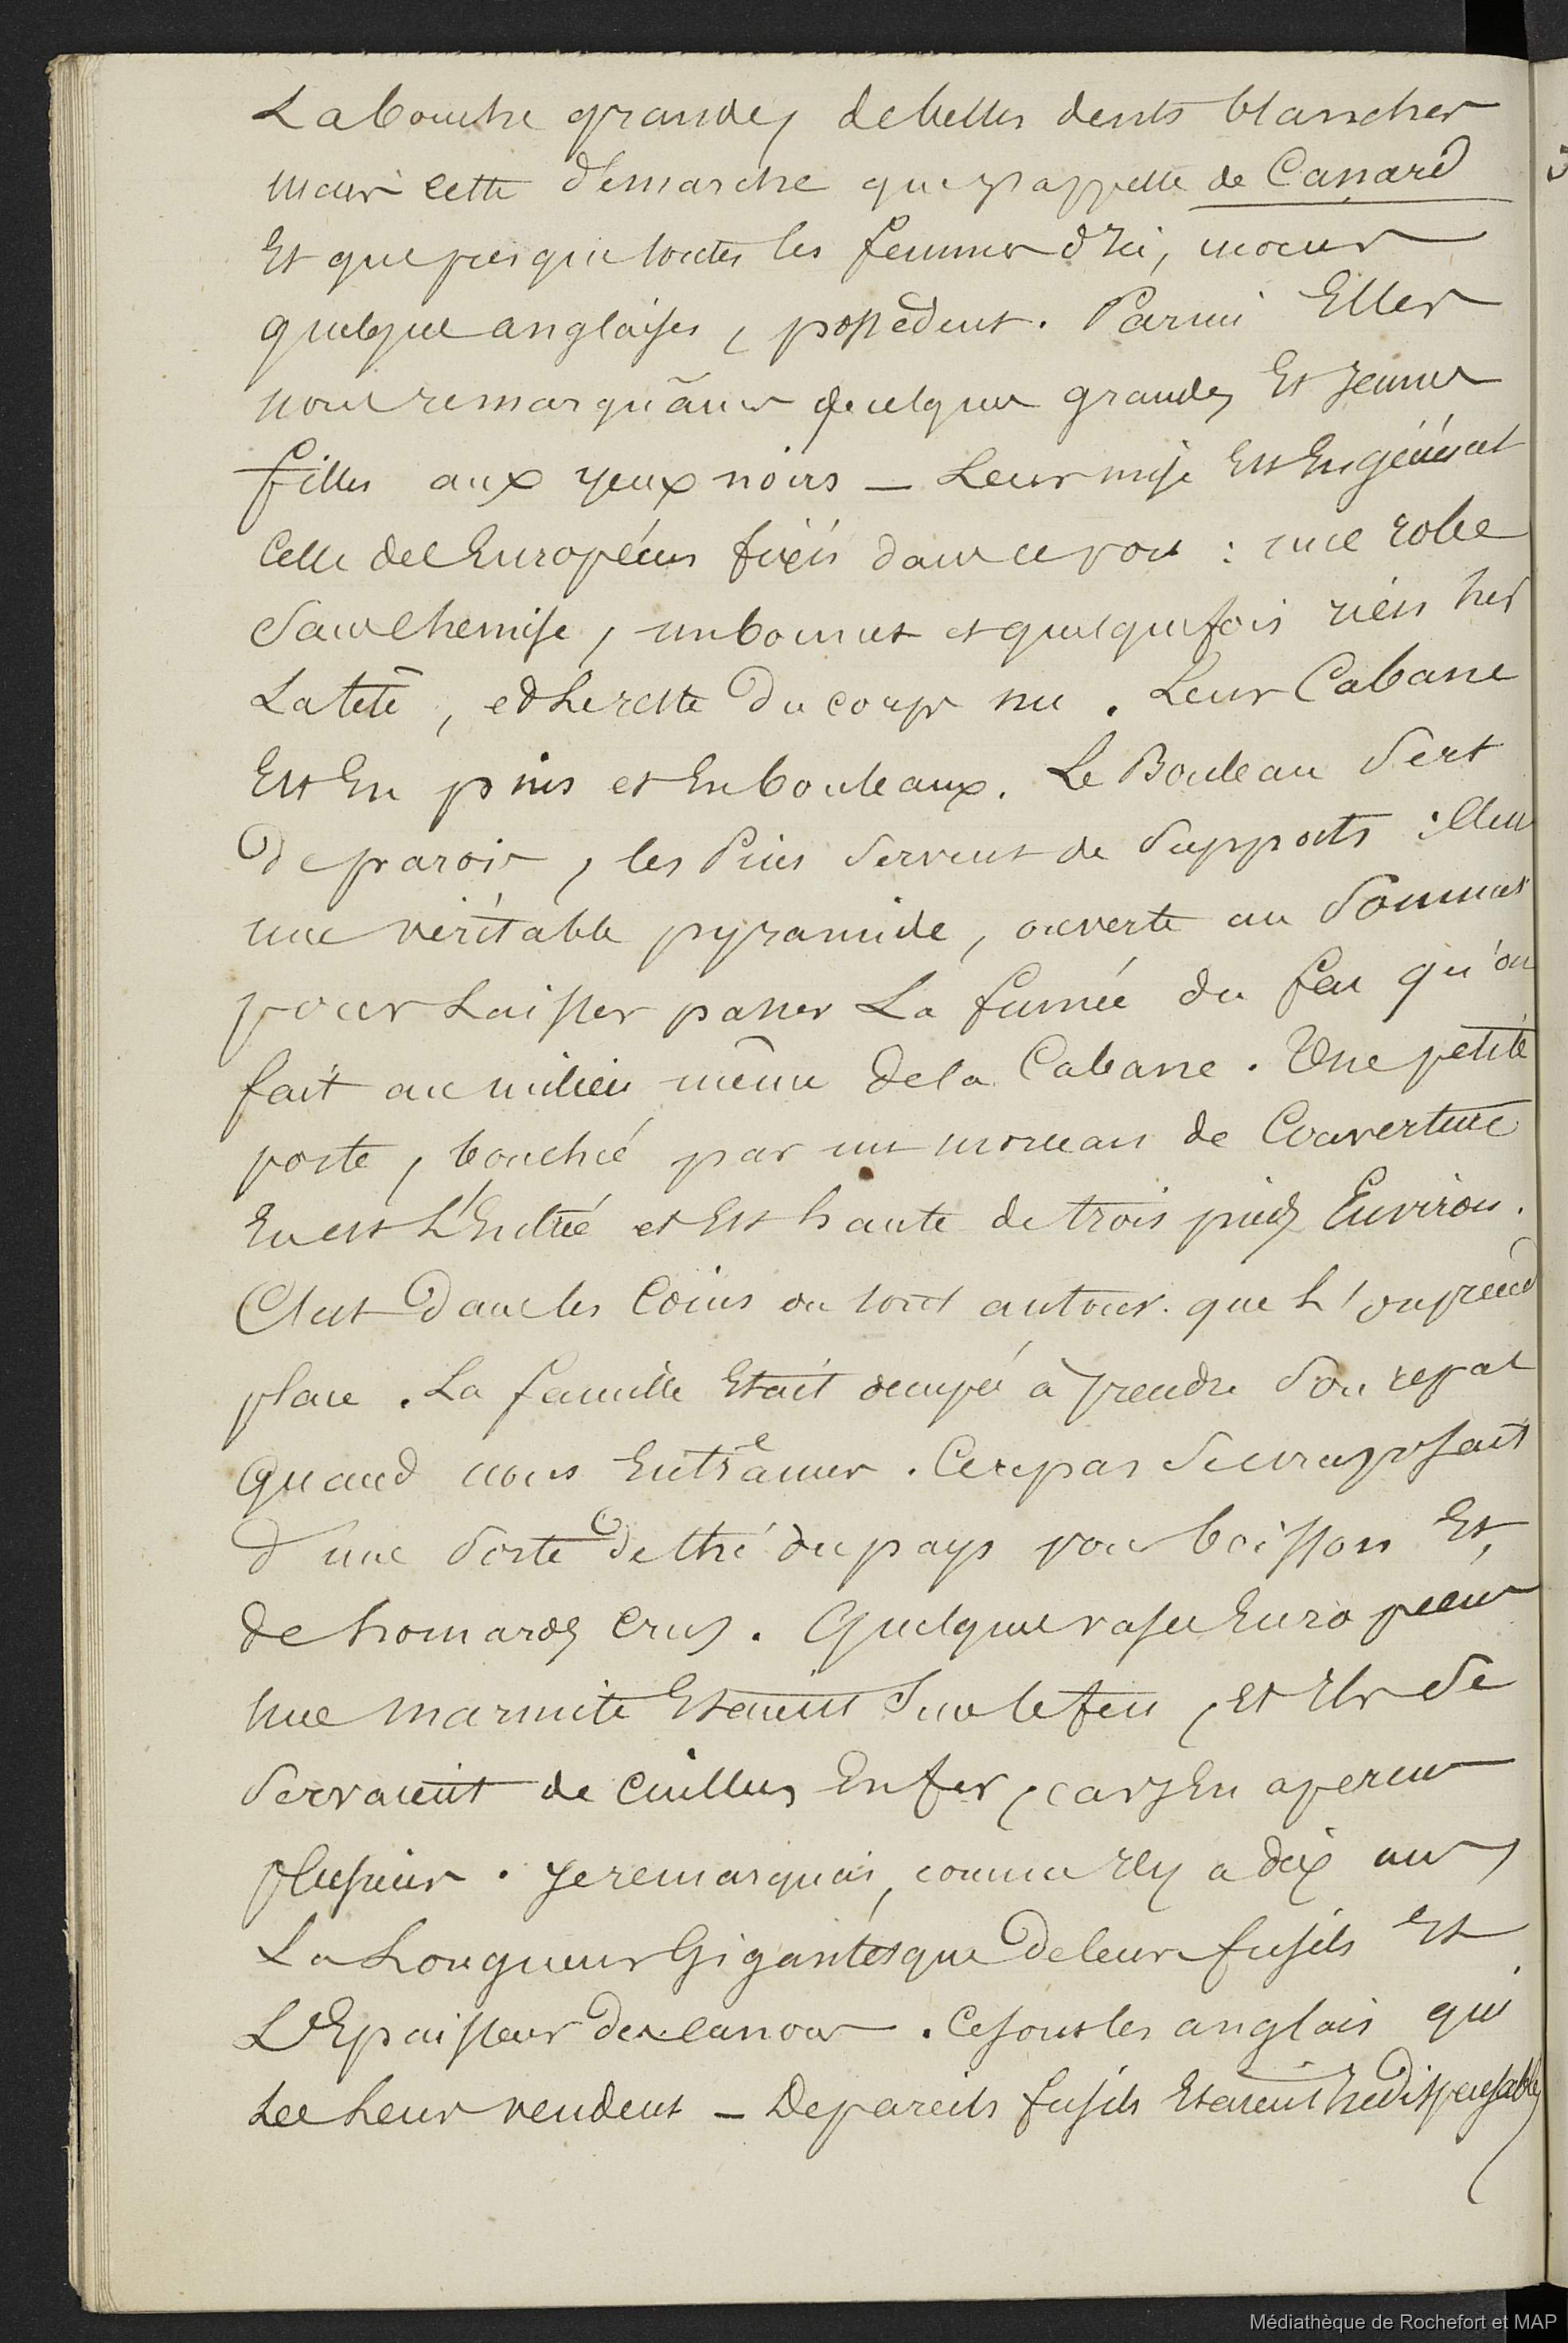 La bouche grande, de belles dents blanches
mais cette démarche que j'appelle de Canard
Et que presque toutes les femmes d'Ici, moins
quelques anglaises, possèdent. Parmi Elles
nous remarquâmes quelques grandes Et jeunes
filles aux yeux noirs — Leur mise Est En général
Celle des Européens fixés dans ce pays : une robe
Sans chemise, un bonnet et quelquefois rien sur
La tête, et Le reste du corps nu. Leur Cabane
Est En pins et En bouleaux. Le Bouleau Sert
De parois, les Pins Servent de Supports : c'est
une véritable pyramide, ouverte au Sommet
pour Laisser passer La fumée du feu qu'on
fait au milieu même de la Cabane. Une petite
porte, bouchée par un morceau de Couverture
En est L'Entrée et Est haute de trois pieds Environ.
C'est Dans les Coins ou tout autour que L'on prend
place. La famille Etait occupée à prendre Son repas
Quand nous Entrâmes. Ce repas Se composait
d'une Sorte De thé du pays pour boisson Et,
de homards crus. Quelques vases Européens
une marmite Etaient Sur le feu, Et Ils Se
Servaient de Cuillers En fer, car j'En aperçus
plusieurs. Je remarquais, comme Il y a dix ans,
La Longueur Gigantesque De leurs fusils Et
L'Epaisseur des canons. Ce sont les anglais qui
Les Leur vendent — De pareils fusils Etaient Indispensables
Médiathèque de Rochefort et MAP